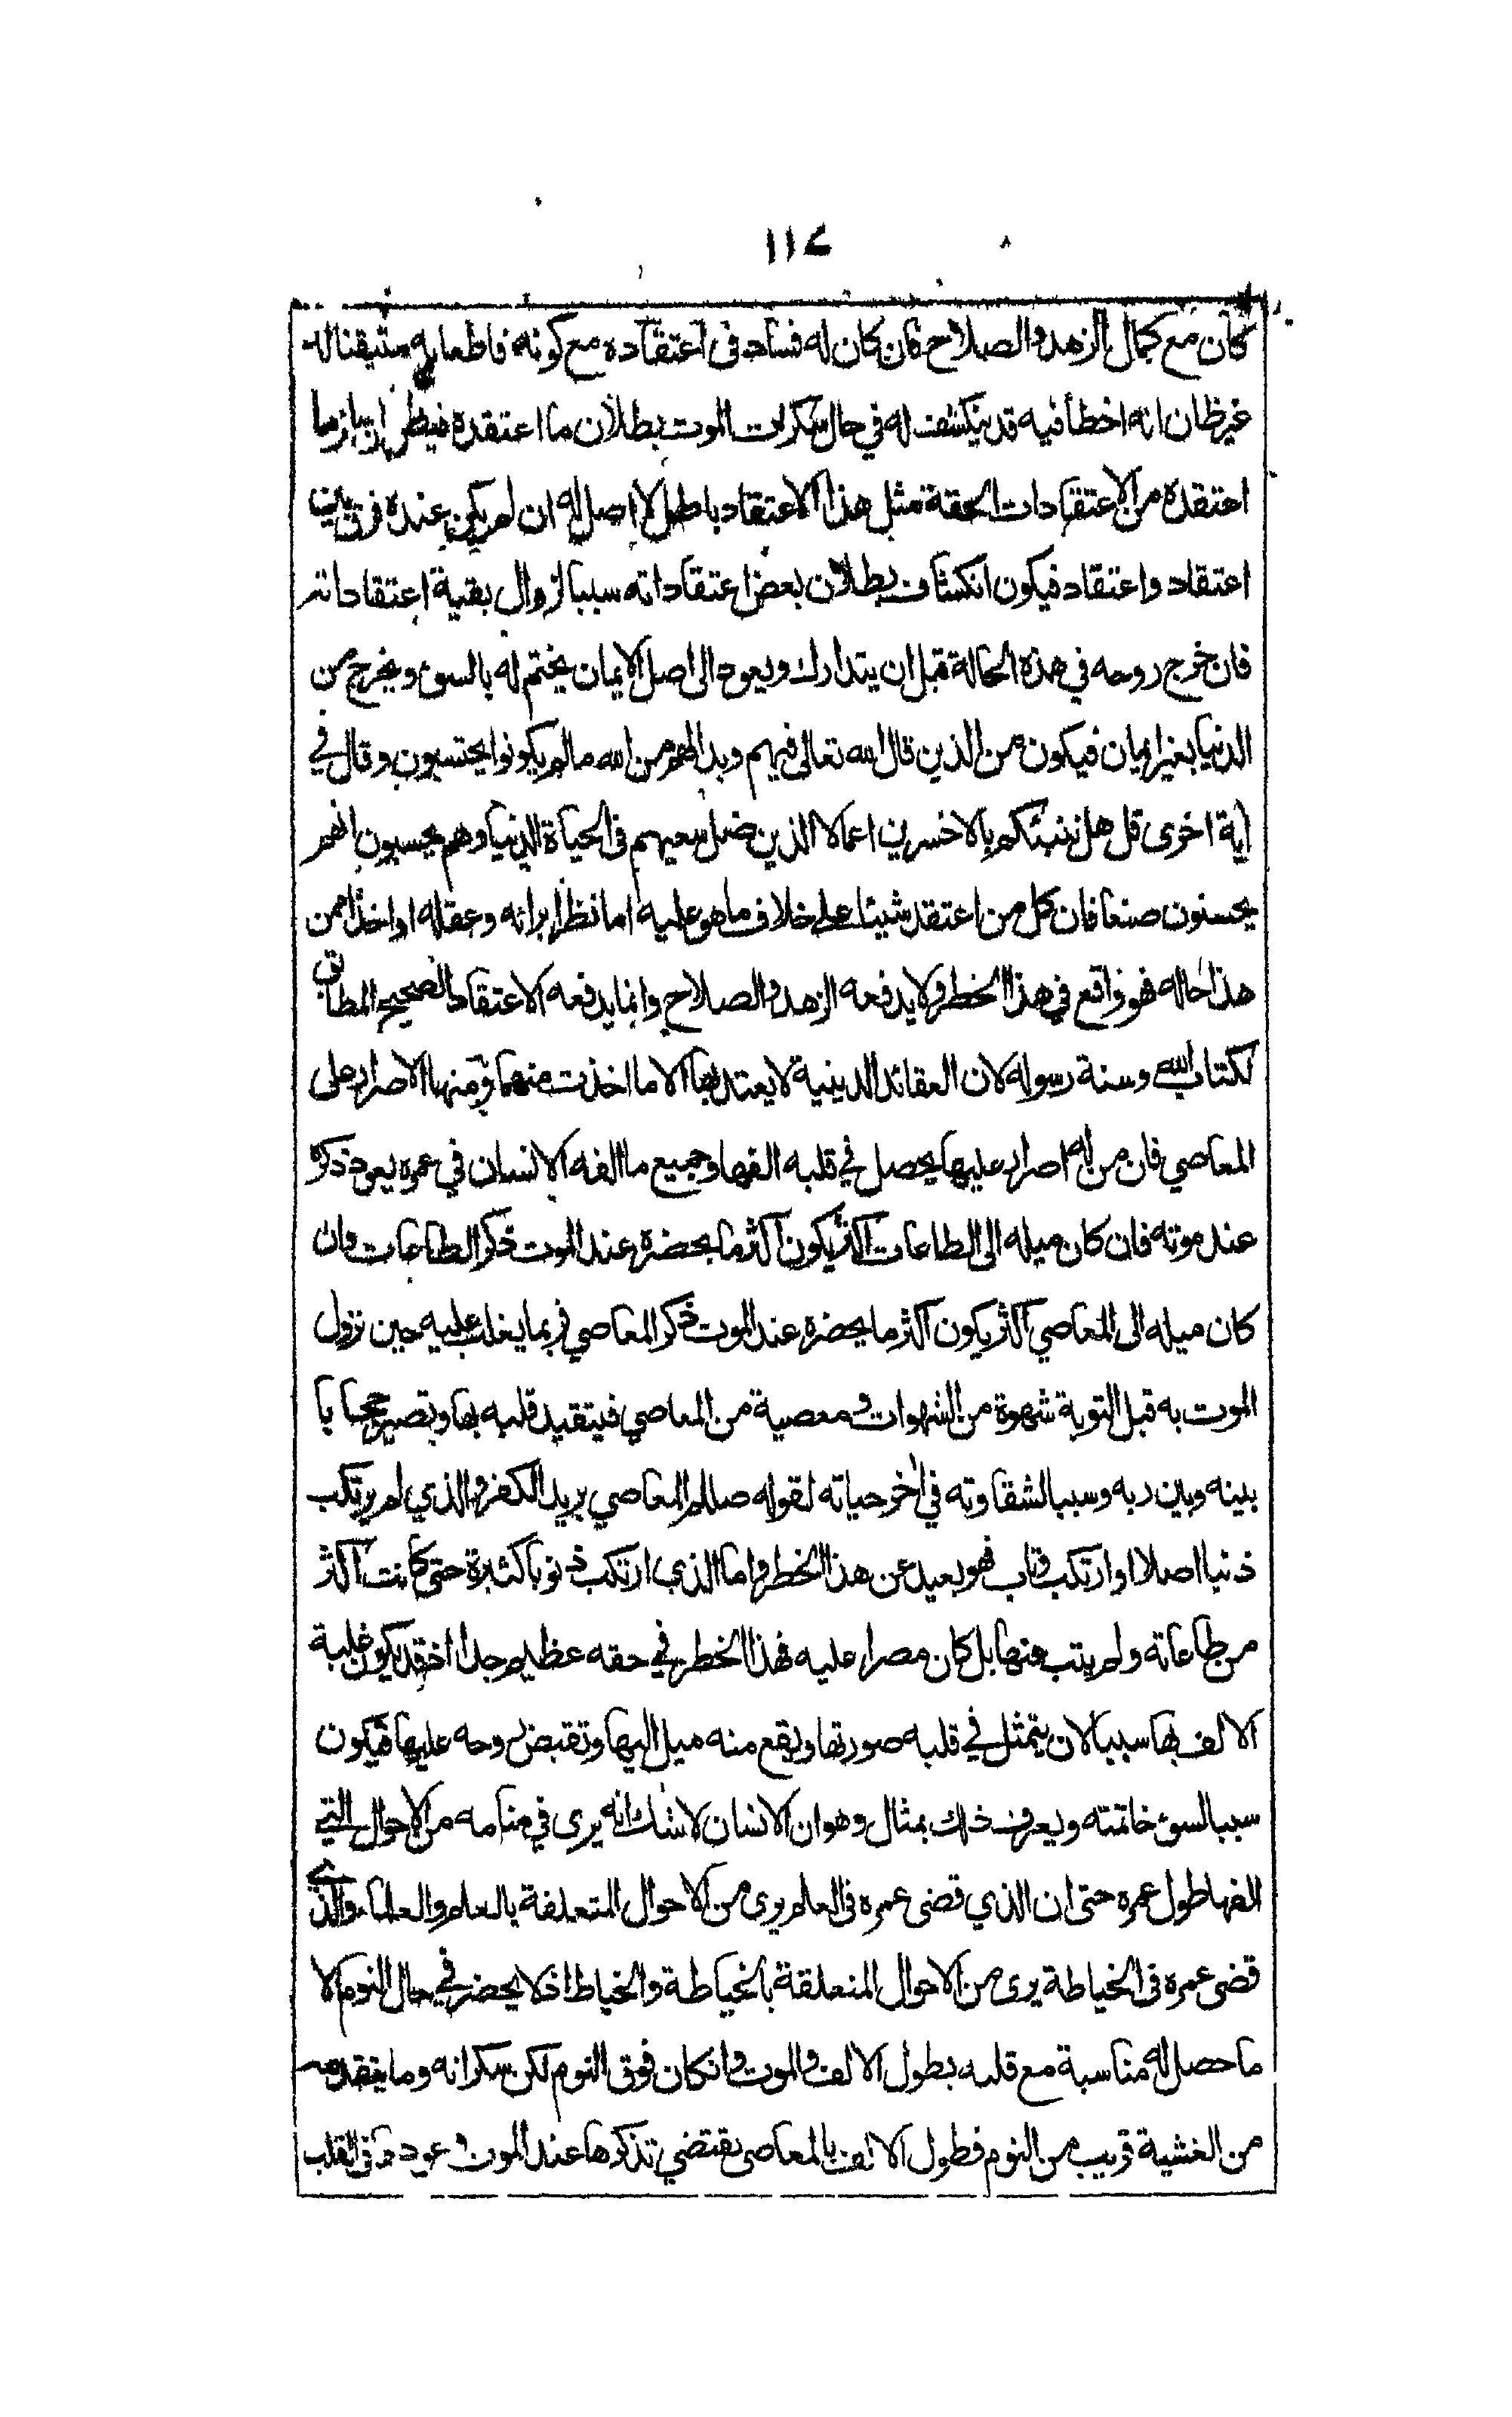 ١١٧
كان مع كمال الزهد والصلاح فان كان له فساد في اعتقاده مع كونه قاطعا به متيقنا له
غير ظان انه اخطأ فيه قد ينكشف له في حال سكرات الموت بطلان ما اعتقده فيظن ان سائر ما
اعتقده من الاعتقادات الحقة مثل هذا الاعتقاد باطل لا اصل له ان لم يكن عنده فرق بين
اعتقاد واعتقاد فيكون انكشاف بطلان بعض اعتقاداته سببا لزوال بقية اعتقاداته
فان خرج روحه في هذه الحالة قبل ان يتدارك ويعود الى اصل الايمان يختم له بالسوء ويخرج من
الدنيا بغير ايمان فيكون من الذين قال الله تعالى فيهم وبدا لهم من الله ما لم يكونوا يحتسبون وقال في
اية اخرى قل هل ننبئكم بالاخسرين اعمالا الذين ضل سعيهم في الحياة الدنيا وهم يحسبون انهم
يحسنون صنعا فان كل من اعتقد شيئا على خلاف ما هو عليه اما نظرا برائه وعقله او اخذا من
هذا حاله فهو واقع في هذا الخطر ولا يدفعه الزهد والصلاح وانما يدفعه الاعتقاد الصحيح المطابق
لكتاب الله وسنة رسوله لان العقائد الدينية لا يعتد بها الا ما اخذت منهما ومنها الاصرار على
المعاصي فان من له اصرار عليها يحصل في قلبه الفها وجميع ما الفه الانسان في عمره يعود ذكره
عند موته فان كان ميله الى الطاعات اكثر يكون اكثر ما يحضره عند الموت ذكر الطاعات وان
كان ميله الى المعاصي اكثر يكون اكثر ما يحضره عند الموت ذكر المعاصي فربما يغلب عليه حين نزول
الموت به قبل التوبة شهوة من الشهوات ومعصية من المعاصي فيتقيد قلبه بها وتصير حجابا
بينه وبين ربه وسببا لشقاوته في اخر حياته لقوله صللم المعاصي بريد الكفر والذي لم يرتكب
ذنبا اصلا او ارتكب وتاب فهو بعيد عن هذا الخطر واما الذي ارتكب ذنوبا كثيرة حتى كانت اكثر
من طاعاته ولم يتب عنها بل كان مصرا عليه فهذا الخطر في حقه عظيم جدا اذ قد يكون غلبة
الالف بها سببا لان يتمثل في قلبه صورتها ويقع منه ميل اليها وتقبض روحه عليها فيكون
سببا لسوء خاتمته ويعرف ذلك بمثال وهو ان الانسان لا شك انه يرى في منامه من الاحوال التي
الفها طول عمره حتى ان الذي قضى عمره في العلم يرى من الاحوال المتعلقة بالعلم والعلماء والذي
قضى عمره في الخياطة يرى من الاحوال المتعلقة بالخياطة والخياط اذ لا يحضر في حال النوم الا
ما حصل له مناسبة مع قلبه بطول الالف والموت وانكان فوق النوم لكن سكراته وما يتقدمه
من الغشية قريب من النوم فطول الالف بالمعاصي يقتضي تذكرها عند الموت وعودها في القلب